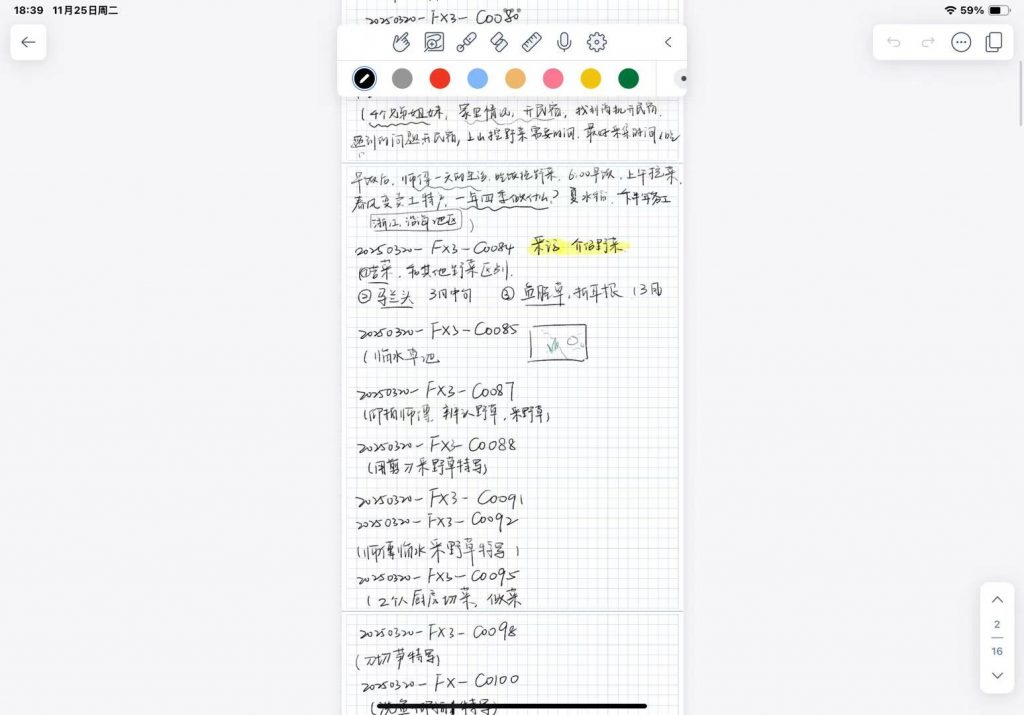 18:39 11月25日周二
59%
20250320-FX3-C0080
(4个兄弟姐妹,家里情况,开民宿,找到商机开民宿.
遇到的问题开民宿,上山挖野菜需要时间.最好采集时间
早饭后,师傅一天的生活,吃饭挖野菜. 6:00早饭,上午挖菜,
一年四季做什么? 夏水
浙江沿海地区)
20250320-FX3-C0084 采访 介绍野菜
①苦菜,和其他野菜区别.
②马兰头 3月中旬 ③血腥草,折耳根 (3月
20250320-FX3-C0085
(临水草地
20250320-FX3-C0087
(师傅,辨认野草,采野草)
20250320-FX3-C0088
(用剪刀采野草特写)
20250320-FX3-C0091
20250320-FX3-C0092
(师傅临水采野草特写)
20250320-FX3-C0095
(2个人厨房切菜,做菜
20250320-FX3-C0098
(刀切笋特写)
20250320-FX-C0100
特写)
2
16